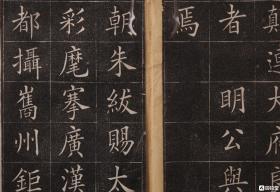 者 明公與
焉
朝朱紱賜太
彩麾搴廣漢
都攝嶲州鉅